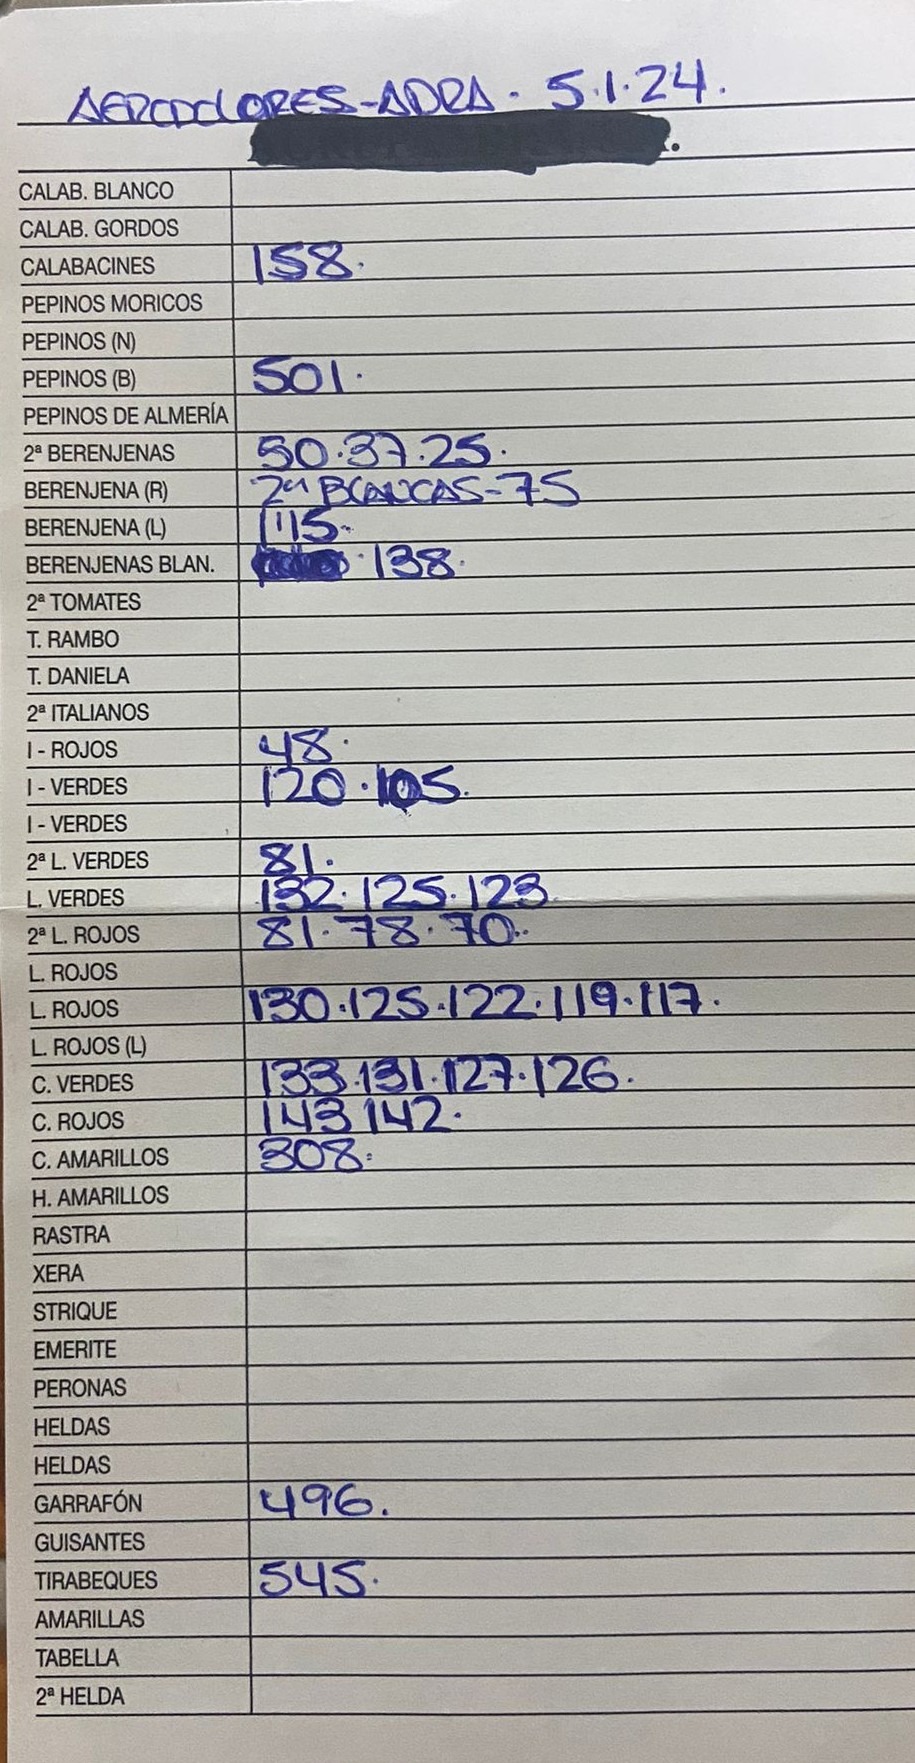 AGRODOLORES-ADRA. 5.1.24.
CALAB. BLANCO
CALAB. GORDOS
CALABACINES 158.
PEPINOS MORICOS
PEPINOS (N)
PEPINOS (B) 501.
PEPINOS DE ALMERÍA
2ª BERENJENAS 50.37.25.
BERENJENA (R) 2ª BLANCAS-75
BERENJENA (L) 115.
BERENJENAS BLAN. 138.
2ª TOMATES
T. RAMBO
T. DANIELA
2ª ITALIANOS
I - ROJOS 48.
I - VERDES 120.105.
I - VERDES
2ª L. VERDES 81.
L. VERDES 132.125.123
2ª L. ROJOS 81.78.70.
L. ROJOS
L. ROJOS 130.125.122.119.117.
L. ROJOS (L)
C. VERDES 133.131.127.126.
C. ROJOS 143 142.
C. AMARILLOS 308.
H. AMARILLOS
RASTRA
XERA
STRIQUE
EMERITE
PERONAS
HELDAS
HELDAS
GARRAFÓN 496.
GUISANTES
TIRABEQUES 545.
AMARILLAS
TABELLA
2ª HELDA